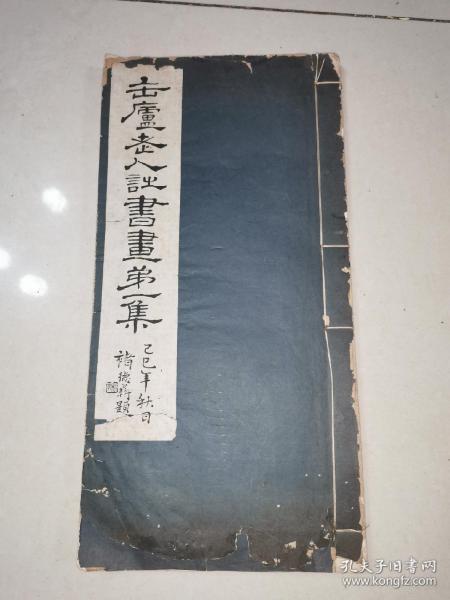 缶廬老人詩書畫第一集
己巳年秋日
褚德彝題
孔夫子旧书网
www.kongfz.com